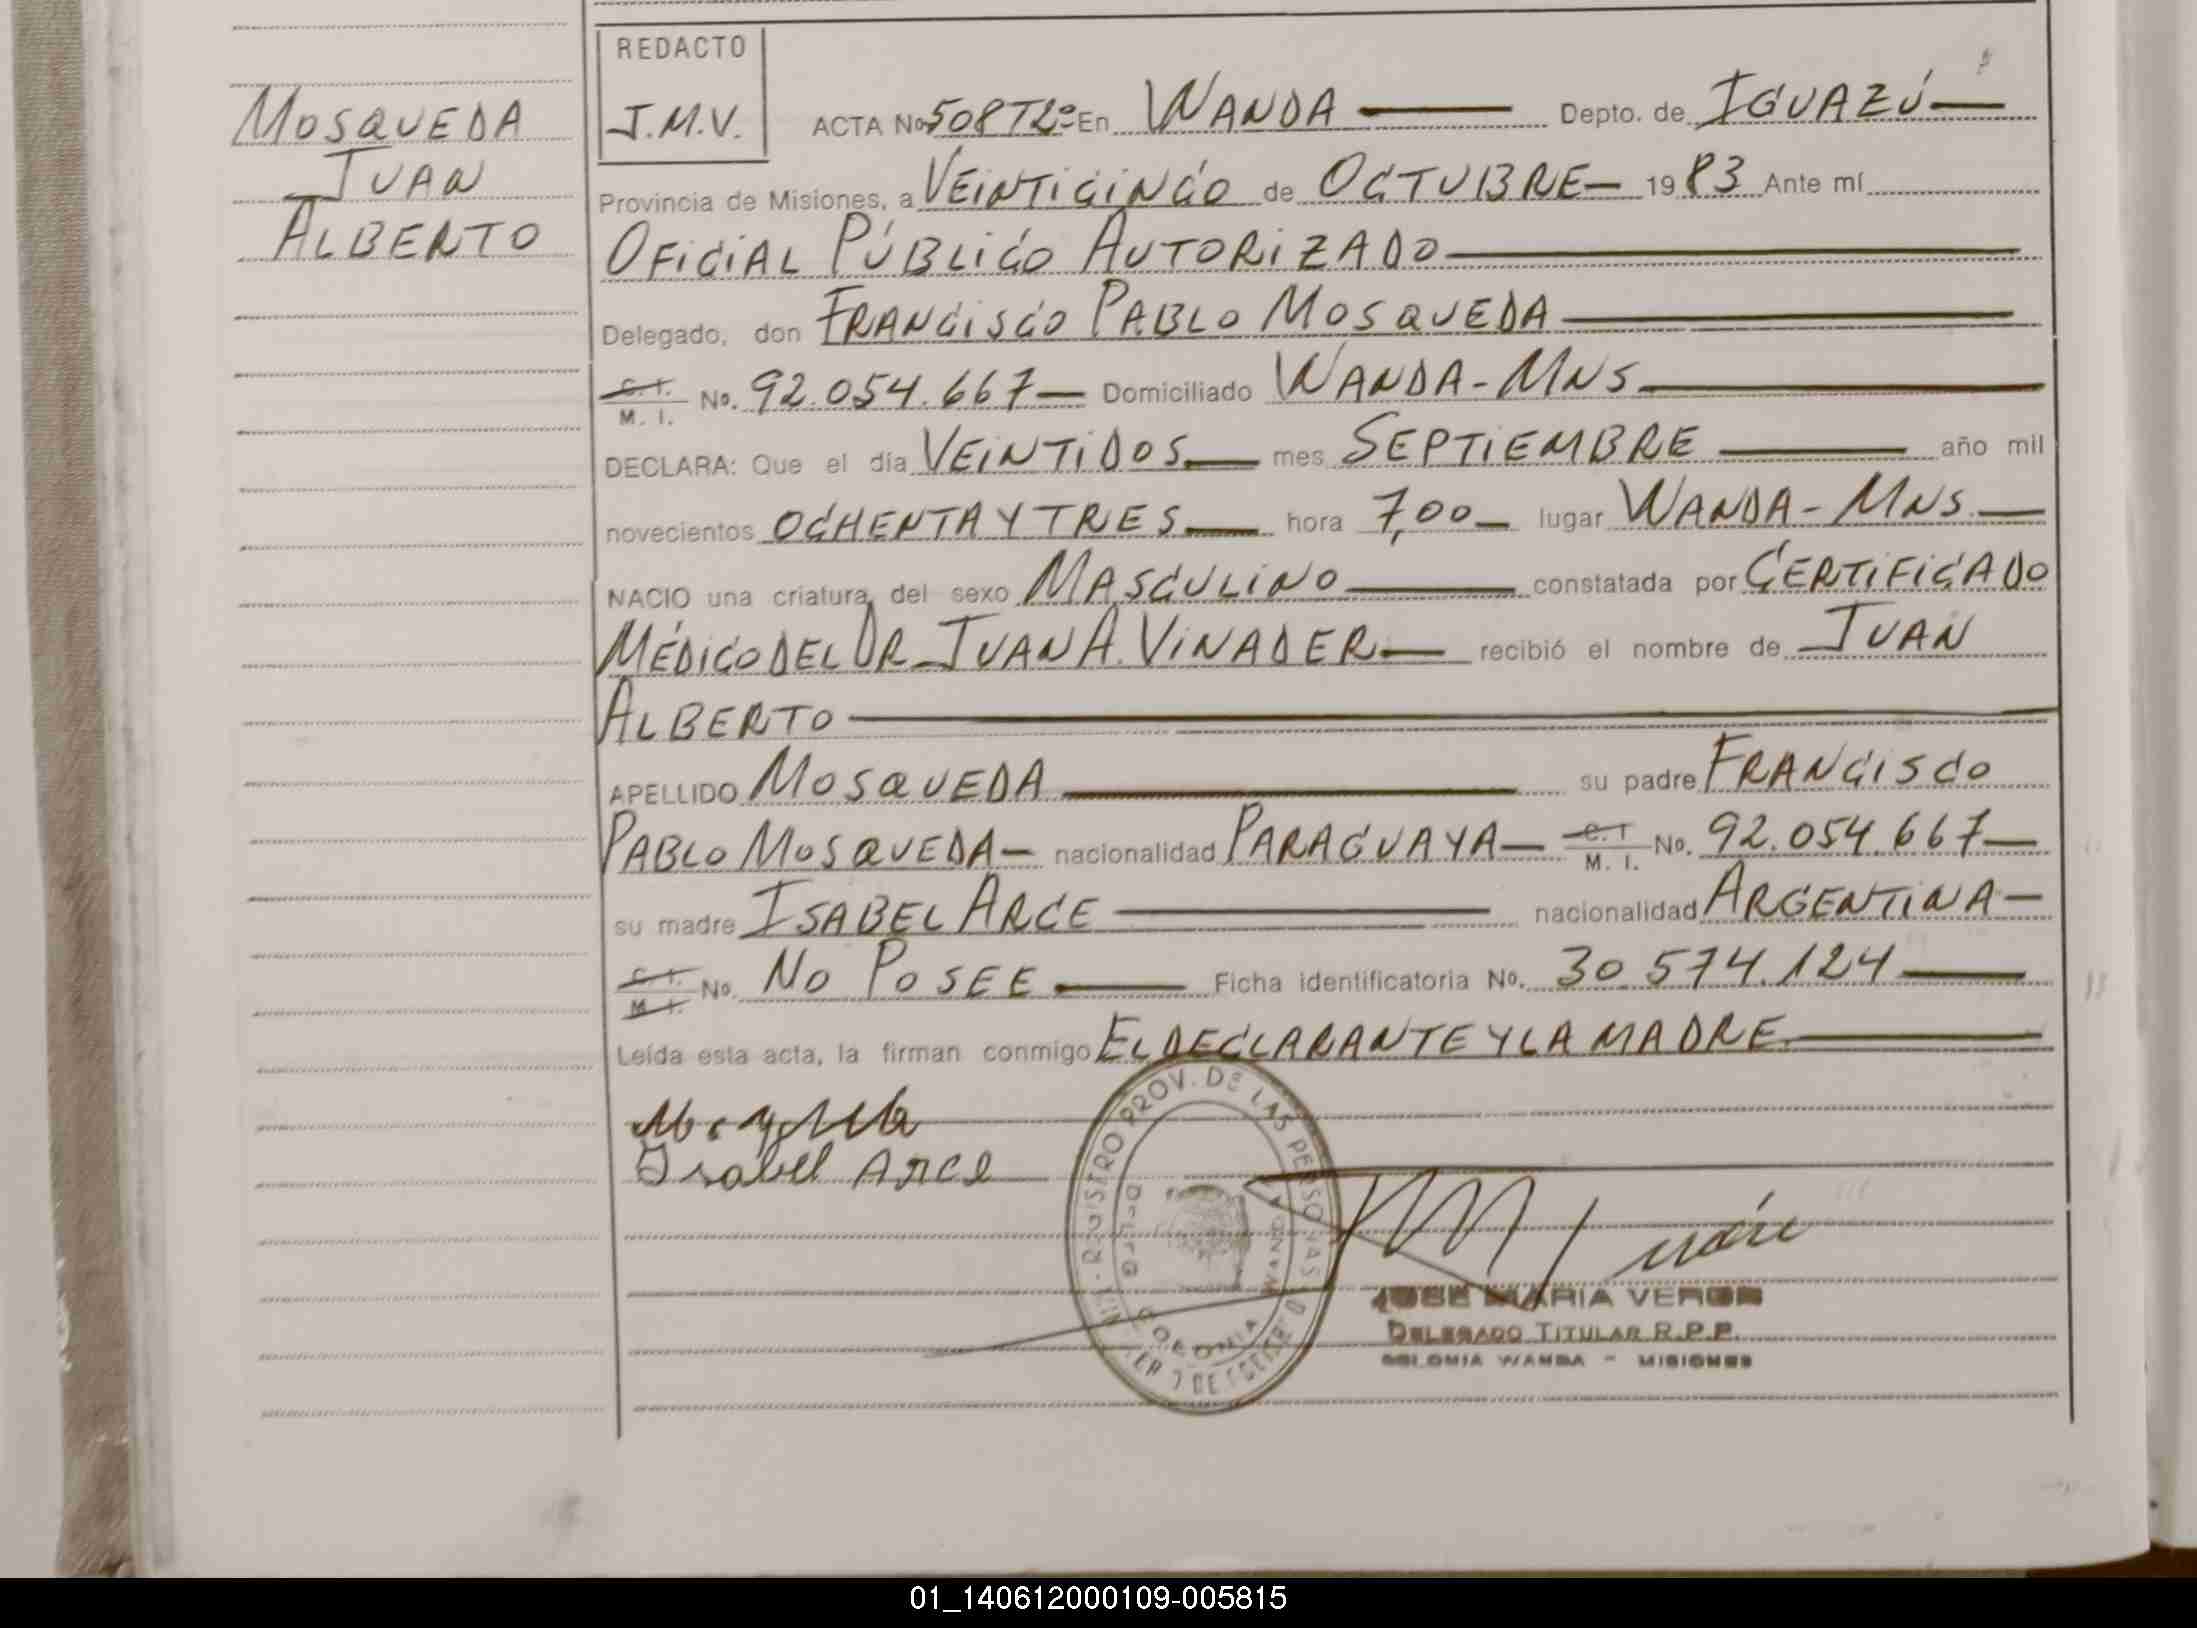 MOSQUEDA
JUAN
ALBERTO
REDACTO
J.M.V.
ACTA No 508 T2º En WANDA Depto. de IGUAZÚ
Provincia de Misiones, a VEINTICINCO de OCTUBRE 1983 Ante mí
OFICIAL PÚBLICO AUTORIZADO
Delegado, don FRANCISCO PABLO MOSQUEDA
C. I.
M. I. No. 92.054.667 Domiciliado WANDA-MNS
DECLARA: Que el día VEINTIDOS mes SEPTIEMBRE año mil
novecientos OCHENTA Y TRES hora 7,00 lugar WANDA-MNS.
NACIO una criatura del sexo MASCULINO constatada por CERTIFICADO
MÉDICO DEL DR. JUAN A. VINADER recibió el nombre de JUAN
ALBERTO
APELLIDO MOSQUEDA su padre FRANCISCO
PABLO MOSQUEDA nacionalidad PARAGUAYA C. I
M. I. No. 92.054.667
su madre ISABEL ARCE nacionalidad ARGENTINA
C. I.
M. I. No. NO POSEE Ficha identificatoria No. 30.574.124
Leída esta acta, la firman conmigo EL DECLARANTE Y LA MADRE.
Isabel Arce
REGISTRO PROV. DE LAS PERSONAS
DELEG
COLONIA
WANDA
JOSE MARIA VERON
DELEGADO TITULAR R.P.P.
COLONIA WANDA - MISIONES
01_140612000109-005815